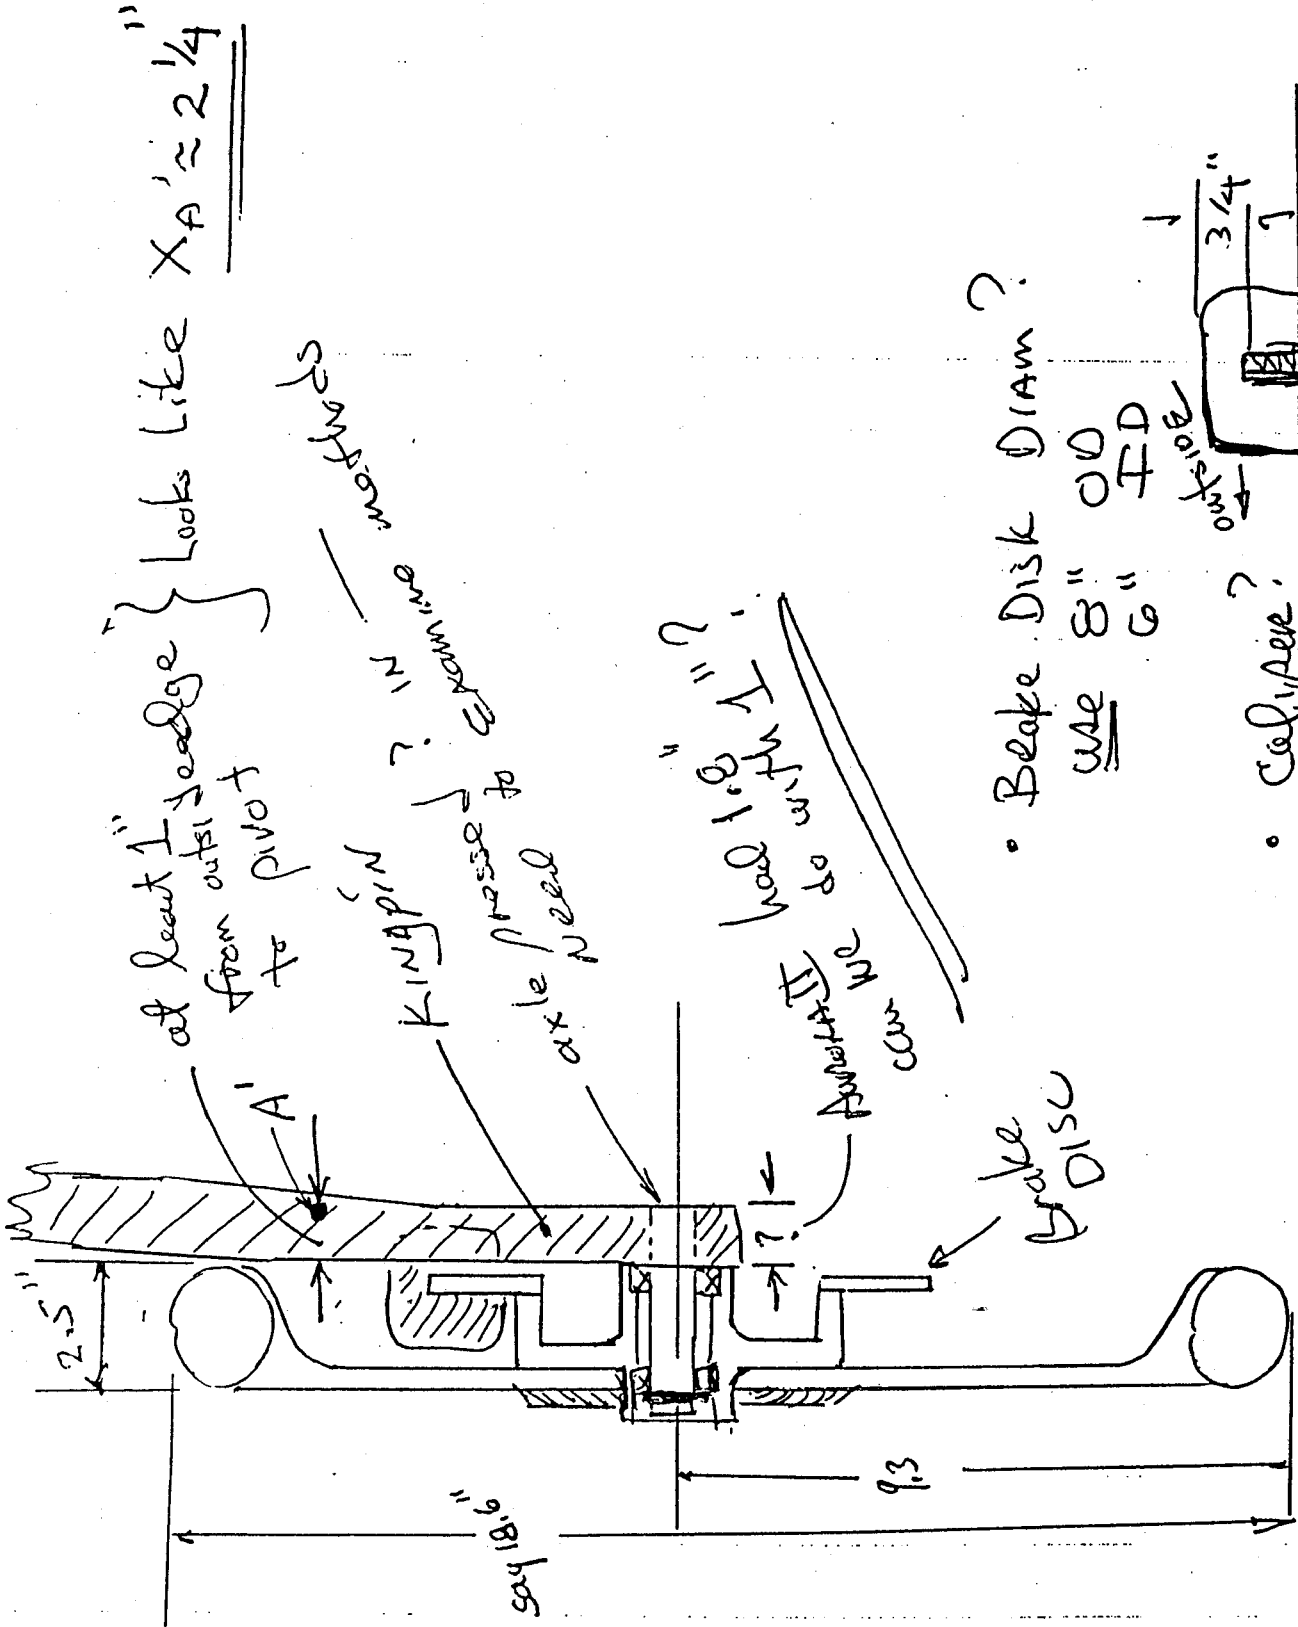 at least 1"
from outside edge
to pivot
Looks Like XA' ≈ 2 1/4"
A'
2.5"
KINGPIN
axle pressed ? IN
Need to Examine methods
Aurora II had 1.8"
can we do with 1"?
?
brake
DISC
say 18.6"
9.3
• Brake Disk DIAM ?
use 8" OD
6" ID
• Caliper?
outside
3/4"